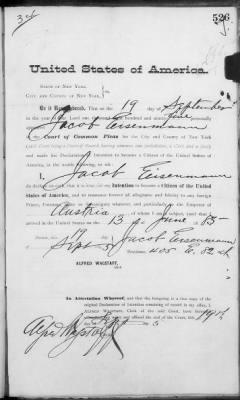 3rd
526
United States of America.
STATE OF NEW YORK,
CITY AND COUNTY OF NEW YORK,
Be it Remembered, That on the 19 day of September
in the year of our Lord one thousand eight hundred and ninety five personally
Jacob Eisenmann
Court of Common Pleas for the City and County of New York
(said Court being a Court of Record, having common law jurisdiction, a Clerk and a Seal)
and made his Declaration of Intention to become a Citizen of the United States of America,
in the words following, to wit:
I, Jacob Eisenmann
do declare on oath, that it is bona fide my Intention to become a Citizen of the United
States of America, and to renounce forever all allegiance and fidelity to any foreign
Prince, Potentate, State or Sovereignty whatever, and particularly to the Emperor of
Austria of whom I am a subject
arrived in the United States on the 13 of June 85
19
Sept 5 Jacob Eisenmann
Residence, 405 E. 82 st
ALFRED WAGSTAFF,
Clerk
In Attestation Whereof, and that the foregoing is a true copy of the
original Declaration of Intention remaining of record in my office, I
ALFRED WAGSTAFF, Clerk of the said Court, have
and affixed the seal of the Court, this 19th
Sept 5
Alfred Wagstaff